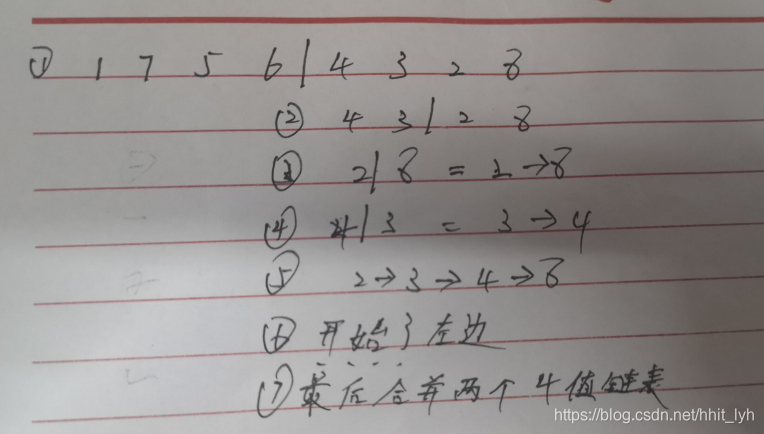 ① 1 7 5 6 | 4 3 2 8
② 4 3 | 2 8
③ 2 | 8 = 2 → 8
④ 4 | 3 = 3 → 4
⑤ 2 → 3 → 4 → 8
⑥ 开始了左边
⑦ 最后合并两个4值链表
https://blog.csdn.net/hhit_lyh